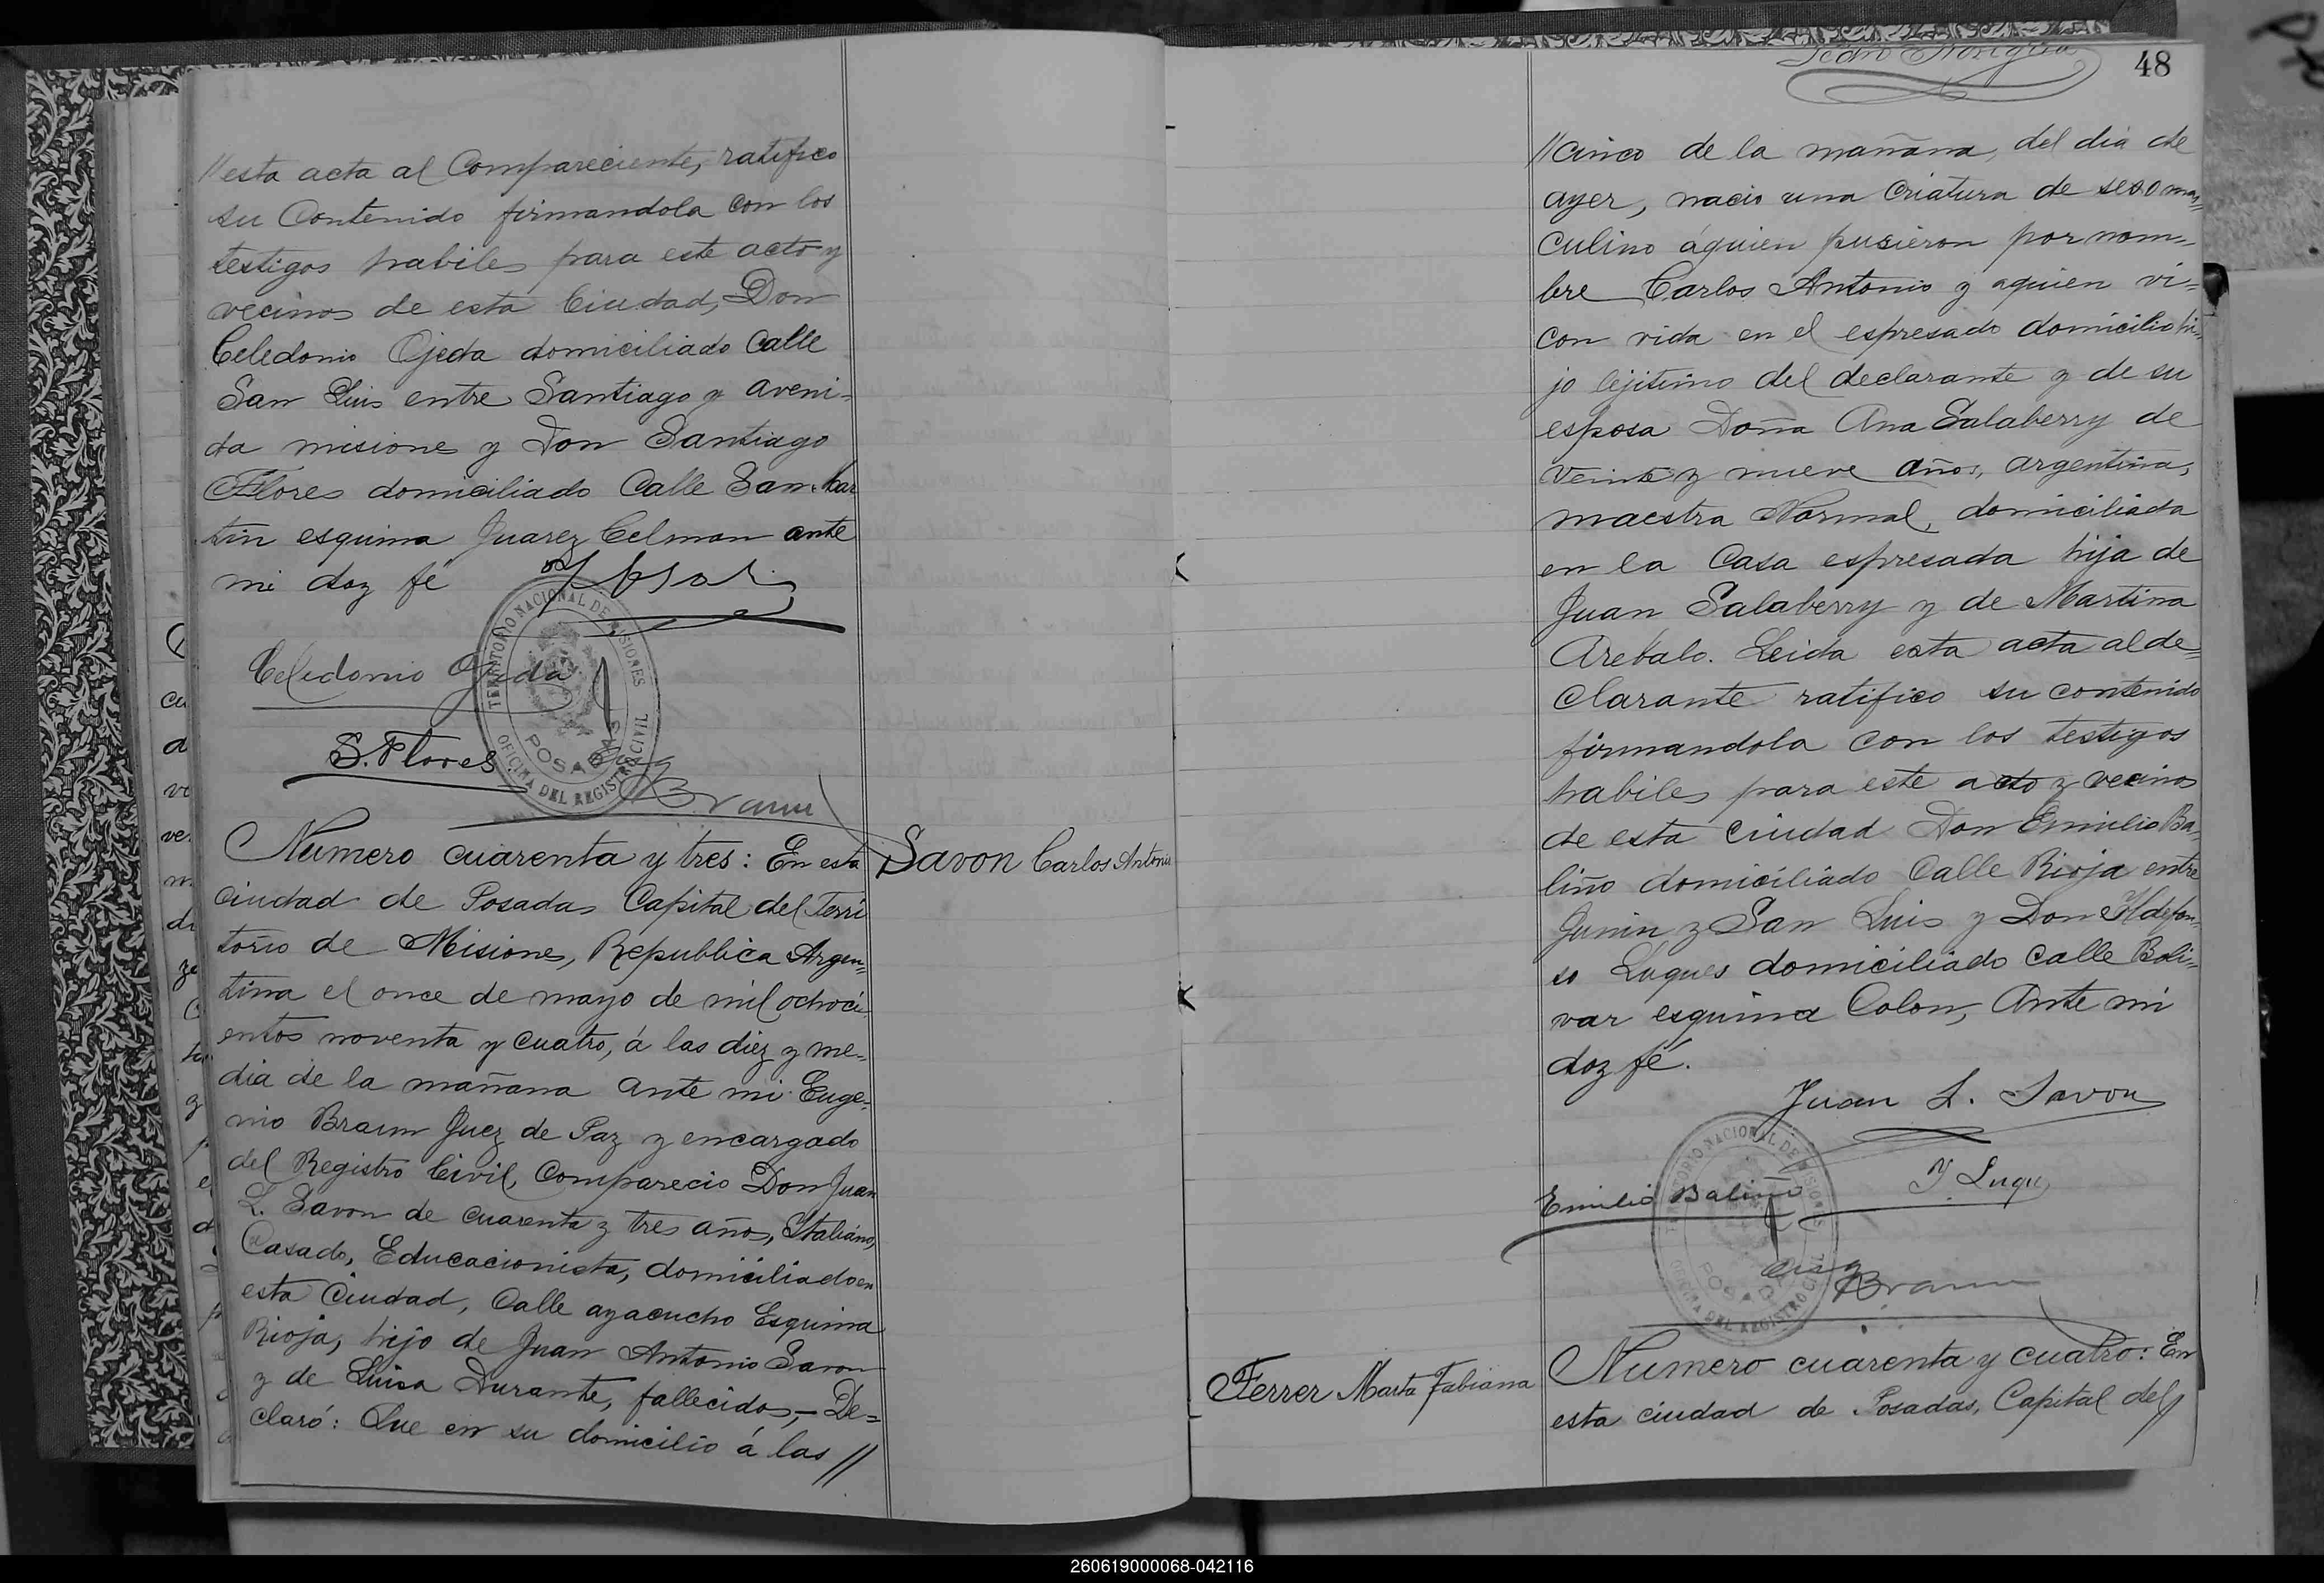 //esta acta al Compareciente, ratifico
su Contenido firmandola con los
testigos habiles para este acto y
vecinos de esta Ciudad, Don
Celedonio Ojeda domiciliado Calle
San Luis entre Santiago y aveni-
da misiones y Don Santiago
Flores domiciliado Calle San Mar
tin esquina Juarez Celman ante
mi doy fé
TERRITORIO NACIONAL DE MISIONES
POSADAS
OFICINA DEL REGISTRO CIVIL
Celedonio Ojeda
S. Flores
Eug
Braun
Numero cuarenta y tres: En esta
Savon Carlos Antonio
ciudad de Posadas Capital del Terri
torio de Misiones, Republica Argen=
tina el once de mayo de mil ochoci-
entos noventa y cuatro, á las diez y me-
dia de la mañana ante mi Euge-
nio Braun Juez de Paz y encargado
del Registro Civil, Comparecio Don Juan
L. Savon de cuarenta y tres años, Italiano,
Casado, Educacionista, domiciliado en
esta Ciudad, Calle ayacucho Esquina
Rioja, hijo de Juan Antonio Savon
y de Luisa Durante, fallecidos,- De=
claró: Que en su domicilio á las //
48
//cinco de la mañana, del dia de
ayer, nacio una Criatura de sexo mas=
culino áquien pusieron por nom=
bre Carlos Antonio y aquien vi=
con vida en el espresado domicilio hi=
jo lejitimo del declarante y de su
esposa Doña Ana Salaberry de
veinte y nueve años, argentina,
maestra Normal, domiciliada
en la Casa espresada hija de
Juan Salaberry y de Martina
Arebalo. Leida esta acta al de=
clarante ratifico su contenido
firmandola con los testigos
habiles para este acto y vecinos
de esta ciudad Don Emilio Ba-
liño domiciliado Calle Rioja entre
Junin y San Luis y Don Ildefon-
so Luques domiciliado calle Boli=
var esquina Colon, Ante mi
doy fé.
Juan L. Savon
Emilio Baliño
Y Luque
TERRITORIO NACIONAL DE MISIONES
POSADAS
OFICINA DEL REGISTRO CIVIL
Eug
Braun
Ferrer Marta Fabiana
Numero cuarenta y cuatro: En
esta ciudad de Posadas, Capital del//
260619000068-042116